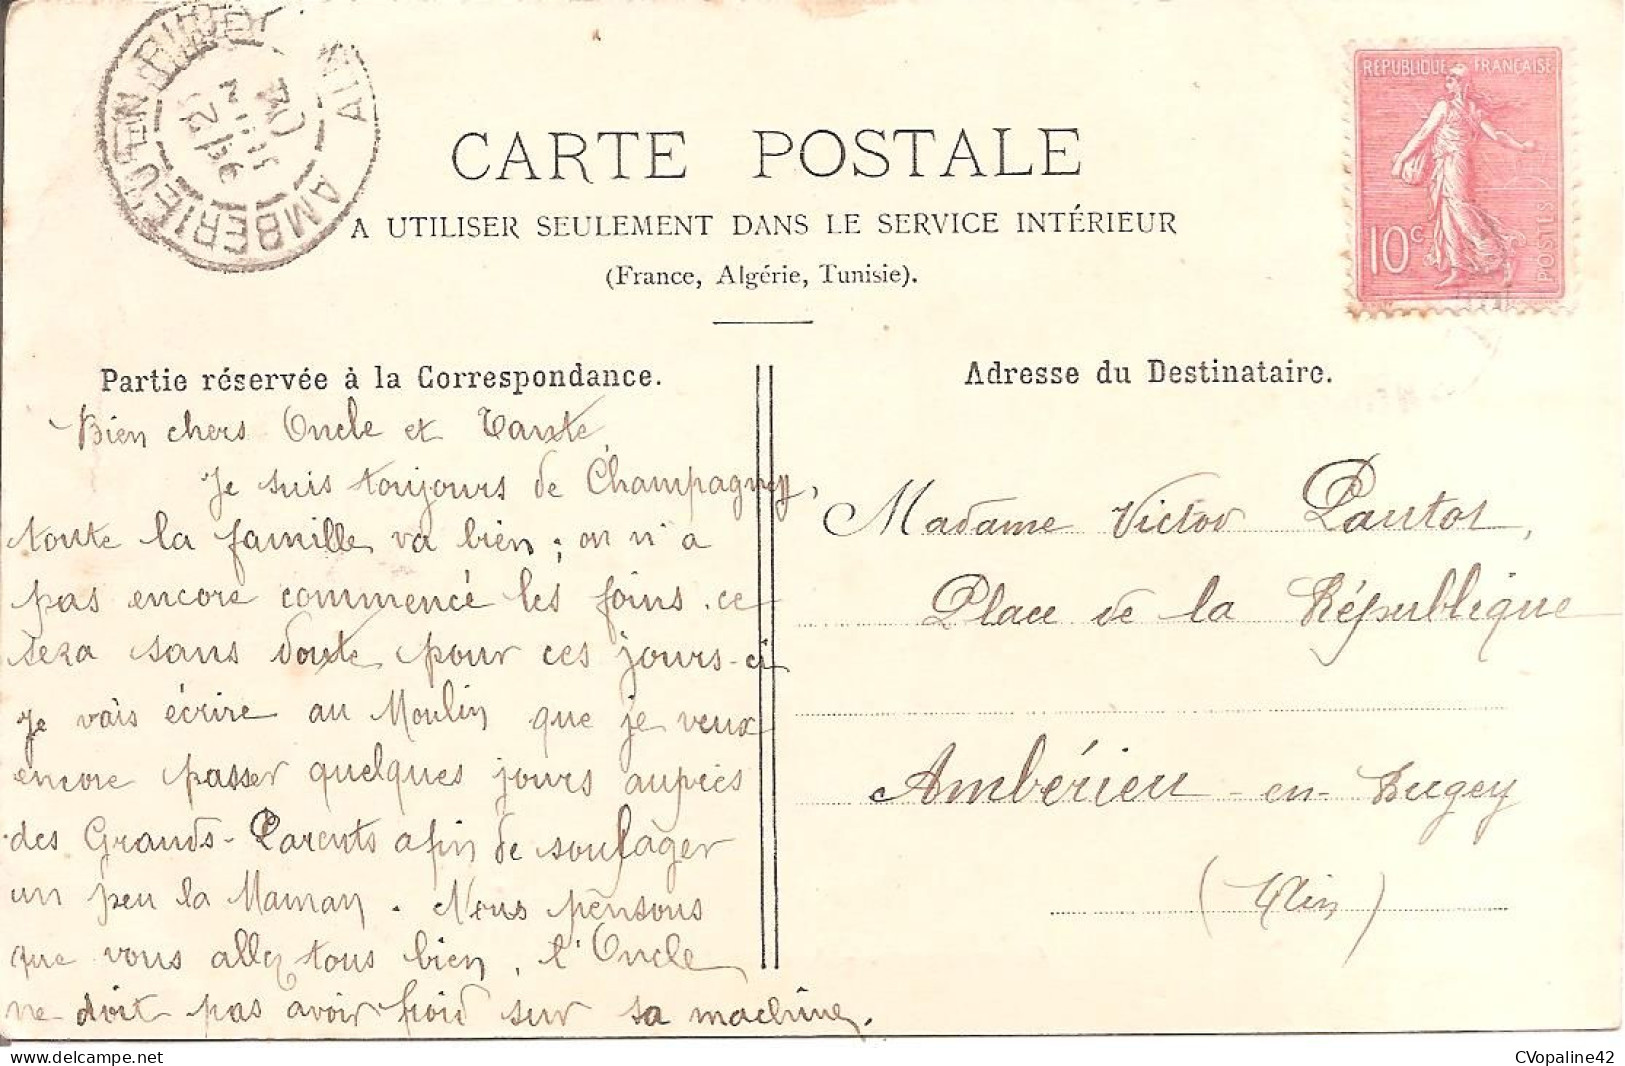 AMBERIEU-EN-BUGEY AIN
CARTE POSTALE
A UTILISER SEULEMENT DANS LE SERVICE INTÉRIEUR
(France, Algérie, Tunisie).
REPUBLIQUE FRANÇAISE
10c
POSTES
Partie réservée à la Correspondance.
Bien chers Oncle et Tante,
Je suis toujours de Champagney,
toute la famille va bien ; on n'a
pas encore commencé les foins. ce
sera sans doute pour ces jours-ci
Je vais écrire au Moulin que je veux
encore passer quelques jours auprès
des Grands-Parents afin de soulager
un peu la Maman. Nous pensons
que vous allez tous bien, l'Oncle
ne doit pas avoir froid sur sa machine.
Adresse du Destinataire.
Madame Victor Pautot,
Place de la République
Ambérieu-en-Bugey
(Ain)
CVopaline42